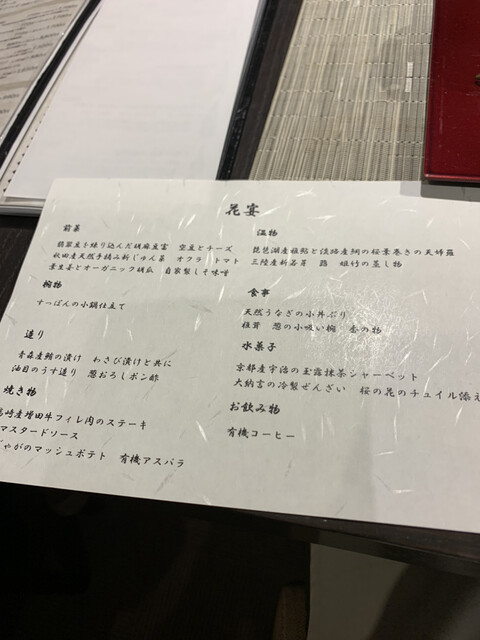 花宴
前菜
翡翠豆を練り込んだ胡麻豆富 空豆とチーズ
秋田産天然手摘み新じゅん菜 オクラ トマト
葉生姜とオーガニック胡瓜 自家製しそ味噌
椀物
すっぽんの小鍋仕立て
造り
青森産鮪の漬け わさび漬けと共に
油目のうす造り 葱おろしポン酢
焼き物
崎産増田牛フィレ肉のステーキ
マスタードソース
じゃがのマッシュポテト 有機アスパラ
温物
琵琶湖産稚鮎と淡路産鯛の桜葉巻きの天婦羅
三陸産新若芽 蕗 姫竹の蒸し物
食事
天然うなぎの小丼ぶり
椎茸 葱の小吸い椀 香の物
水菓子
京都産宇治の玉露抹茶シャーベット
大納言の冷製ぜんざい 桜の花のチュイル添え
お飲み物
有機コーヒー